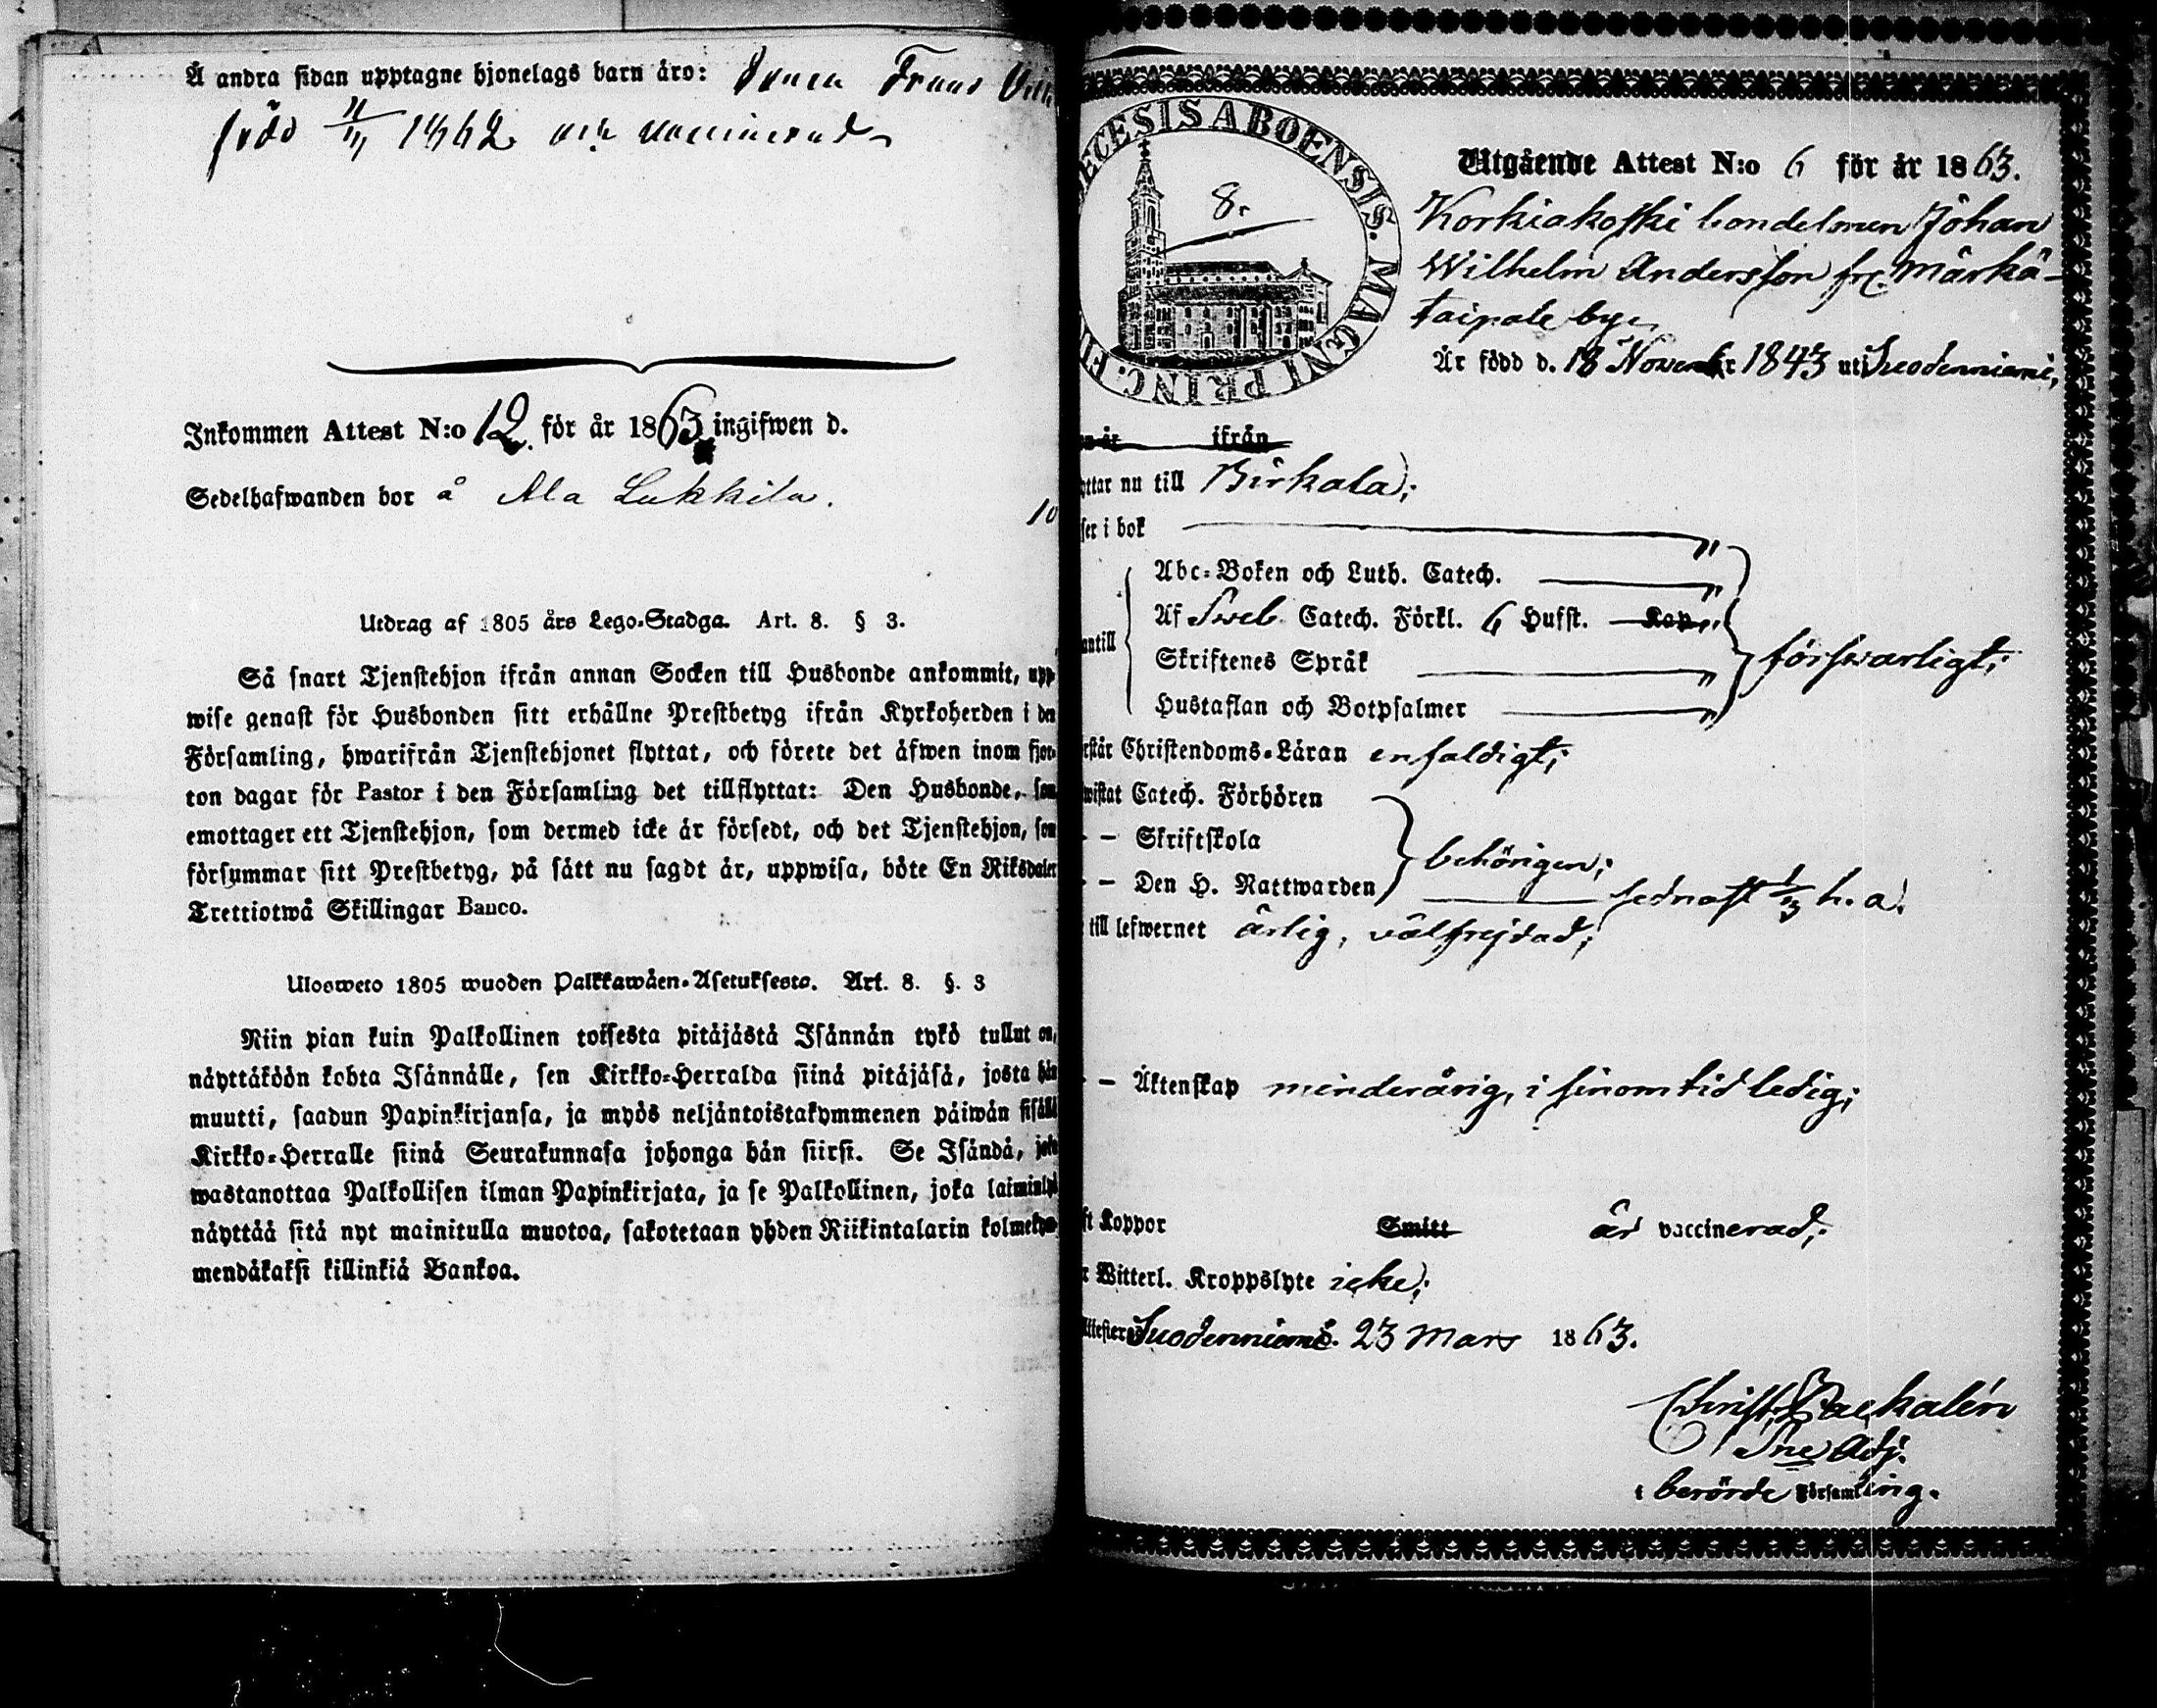 Å andra sidan upptagne hjonelags barn äro: Sonen Frans
född 11/11 1862 vaccinerad
Inkommen Attest N:o 12. för år 1863 ingifwen d.
Sedelhafwanden bor å Ala Lukkila.
10
Utdrag af 1805 års Lego-Stadga. Art. 8. § 3.
Så snart Tjenstehjon ifrån annan Socken till Husbonde ankommit, upp-
wise genast för Husbonden sitt erhållne Prestbetyg ifrån Kyrkoherden i den
Församling, hwarifrån Tjenstehjonet flyttat, och förete det äfwen inom fjor-
ton dagar för Pastor i den Församling det tillflyttat: Den Husbonde, som
emottager ett Tjenstehjon, som dermed icke är försedt, och det Tjenstehjon, som
försummar sitt Prestbetyg, på sätt nu sagdt är, uppwisa, böte En Riksdaler
Trettiotwå Skillingar Banco.
Ulosweto 1805 wuoden Palkkawäen-Asetuksesta. Art. 8. §. 3
Niin pian kuin Palkollinen toisesta pitäjästä Isännän tykö tullut on,
näyttäköön kohta Isännälle, sen Kirkko-Herralda siinä pitäjäsä, josta hän
muutti, saadun Papinkirjansa, ja myös neljäntoistakymmenen päiwän sisällä
Kirkko-Herralle siinä Seurakunnasa johonga hän siirsi. Se Isändä, joka
wastanottaa Palkollisen ilman Papinkirjata, ja se Palkollinen, joka laiminlyö
näyttää sitä nyt mainitulla muotoa, sakotetaan yhden Riikintalarin kolmekym-
mendäkaksi killinkiä Bankoa.
ECESIS ABOENSIS. MAGNI PRINC. FI
8.
Utgående Attest N:o 6 för år 1863.
Korkiakoski bondelmen Johan
Wilhelm Andersson fr. Märkä-
taipale by,
Är född d. 18 November 1843 uti Suodenniemi,
år ifrån
ttar nu till Birkala;
ser i bok "
Abc-Boken och Luth. Catech. "
Af Sveb Catech. Förkl. 6 Hufst. Kap. "
antill
Skriftenes Språk "
försvarligt;
Hustaflan och Botpsalmer "
rstår Christendoms-Läran enfaldigt;
wistat Catech. Förhören
— Skriftskola
behörigen;
— Den H. Nattwarden
sednast 1/3 h. a.
till lefwernet ärlig, välfrejdad;
— Äktenskap minderårig, i sinom tid ledig;
ft Koppor Smitt är vaccinerad;
r Witterl. Kroppslyte icke;
Attesteras Suodenniemi. 23 Mars 1863.
Christ. Backalin
Sne Adj.
i berörde Församling.